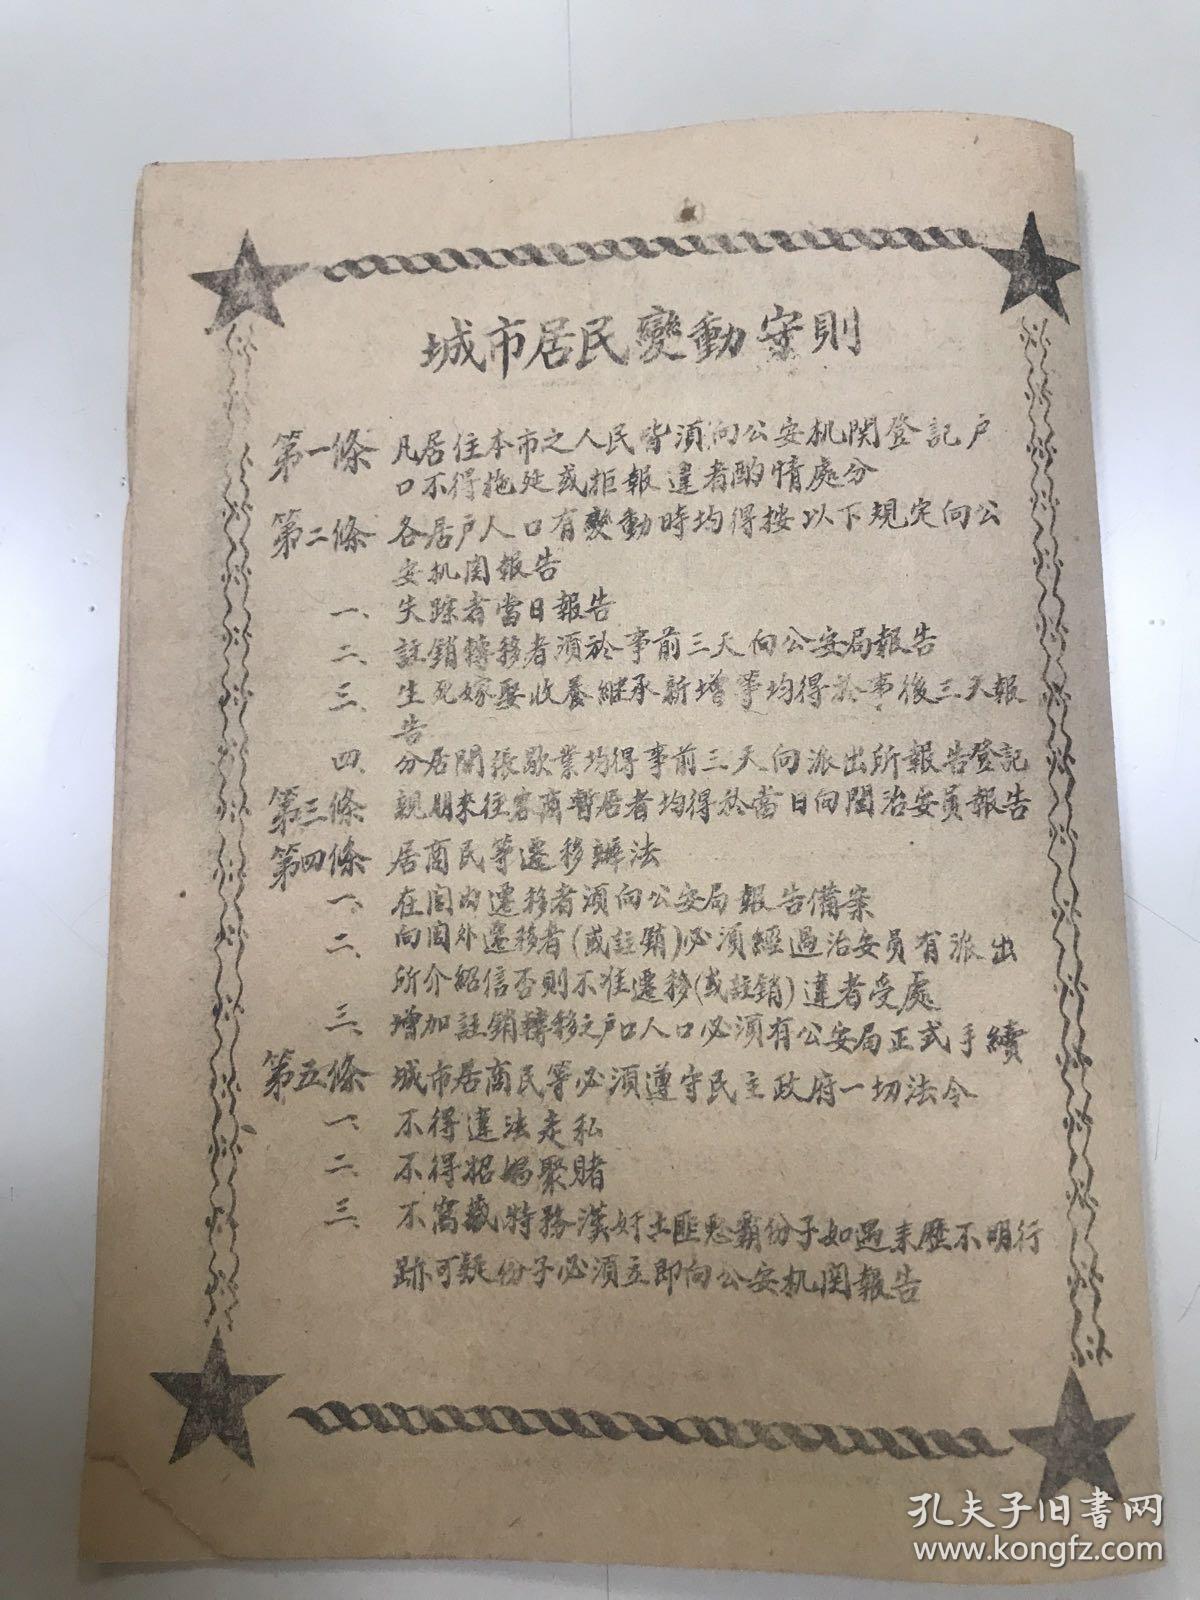 城市居民變動守則
第一條 凡居住本市之人民皆須向公安机関登記戶
口不得拖延或拒報違者酌情處分
第二條 各居戶人口有變動時均得按以下規定向公
安机関報告
一、失踪者當日報告
二、註銷轉移者須於事前三天向公安局報告
三、生死嫁娶收養継承新增等均得於事後三天報
告
四、分居開張歇業均得事前三天向派出所報告登記
第三條 親朋來往客商暫居者均得於當日向閭治安員報告
第四條 居商民等遷移辦法
一、在閭內遷移者須向公安局報告備案
二、向閭外遷移者(或註銷)必須經過治安員有派出
所介紹信否則不准遷移(或註銷)違者受處
三、增加註銷轉移之戶口人口必須有公安局正式手續
第五條 城市居商民等必須遵守民主政府一切法令
一、不得違法走私
二、不得招娼聚賭
三、不窩藏特務漢奸土匪惡霸份子如遇来歷不明行
跡可疑份子必須立即向公安机関報告
孔夫子旧书网
www.kongfz.com